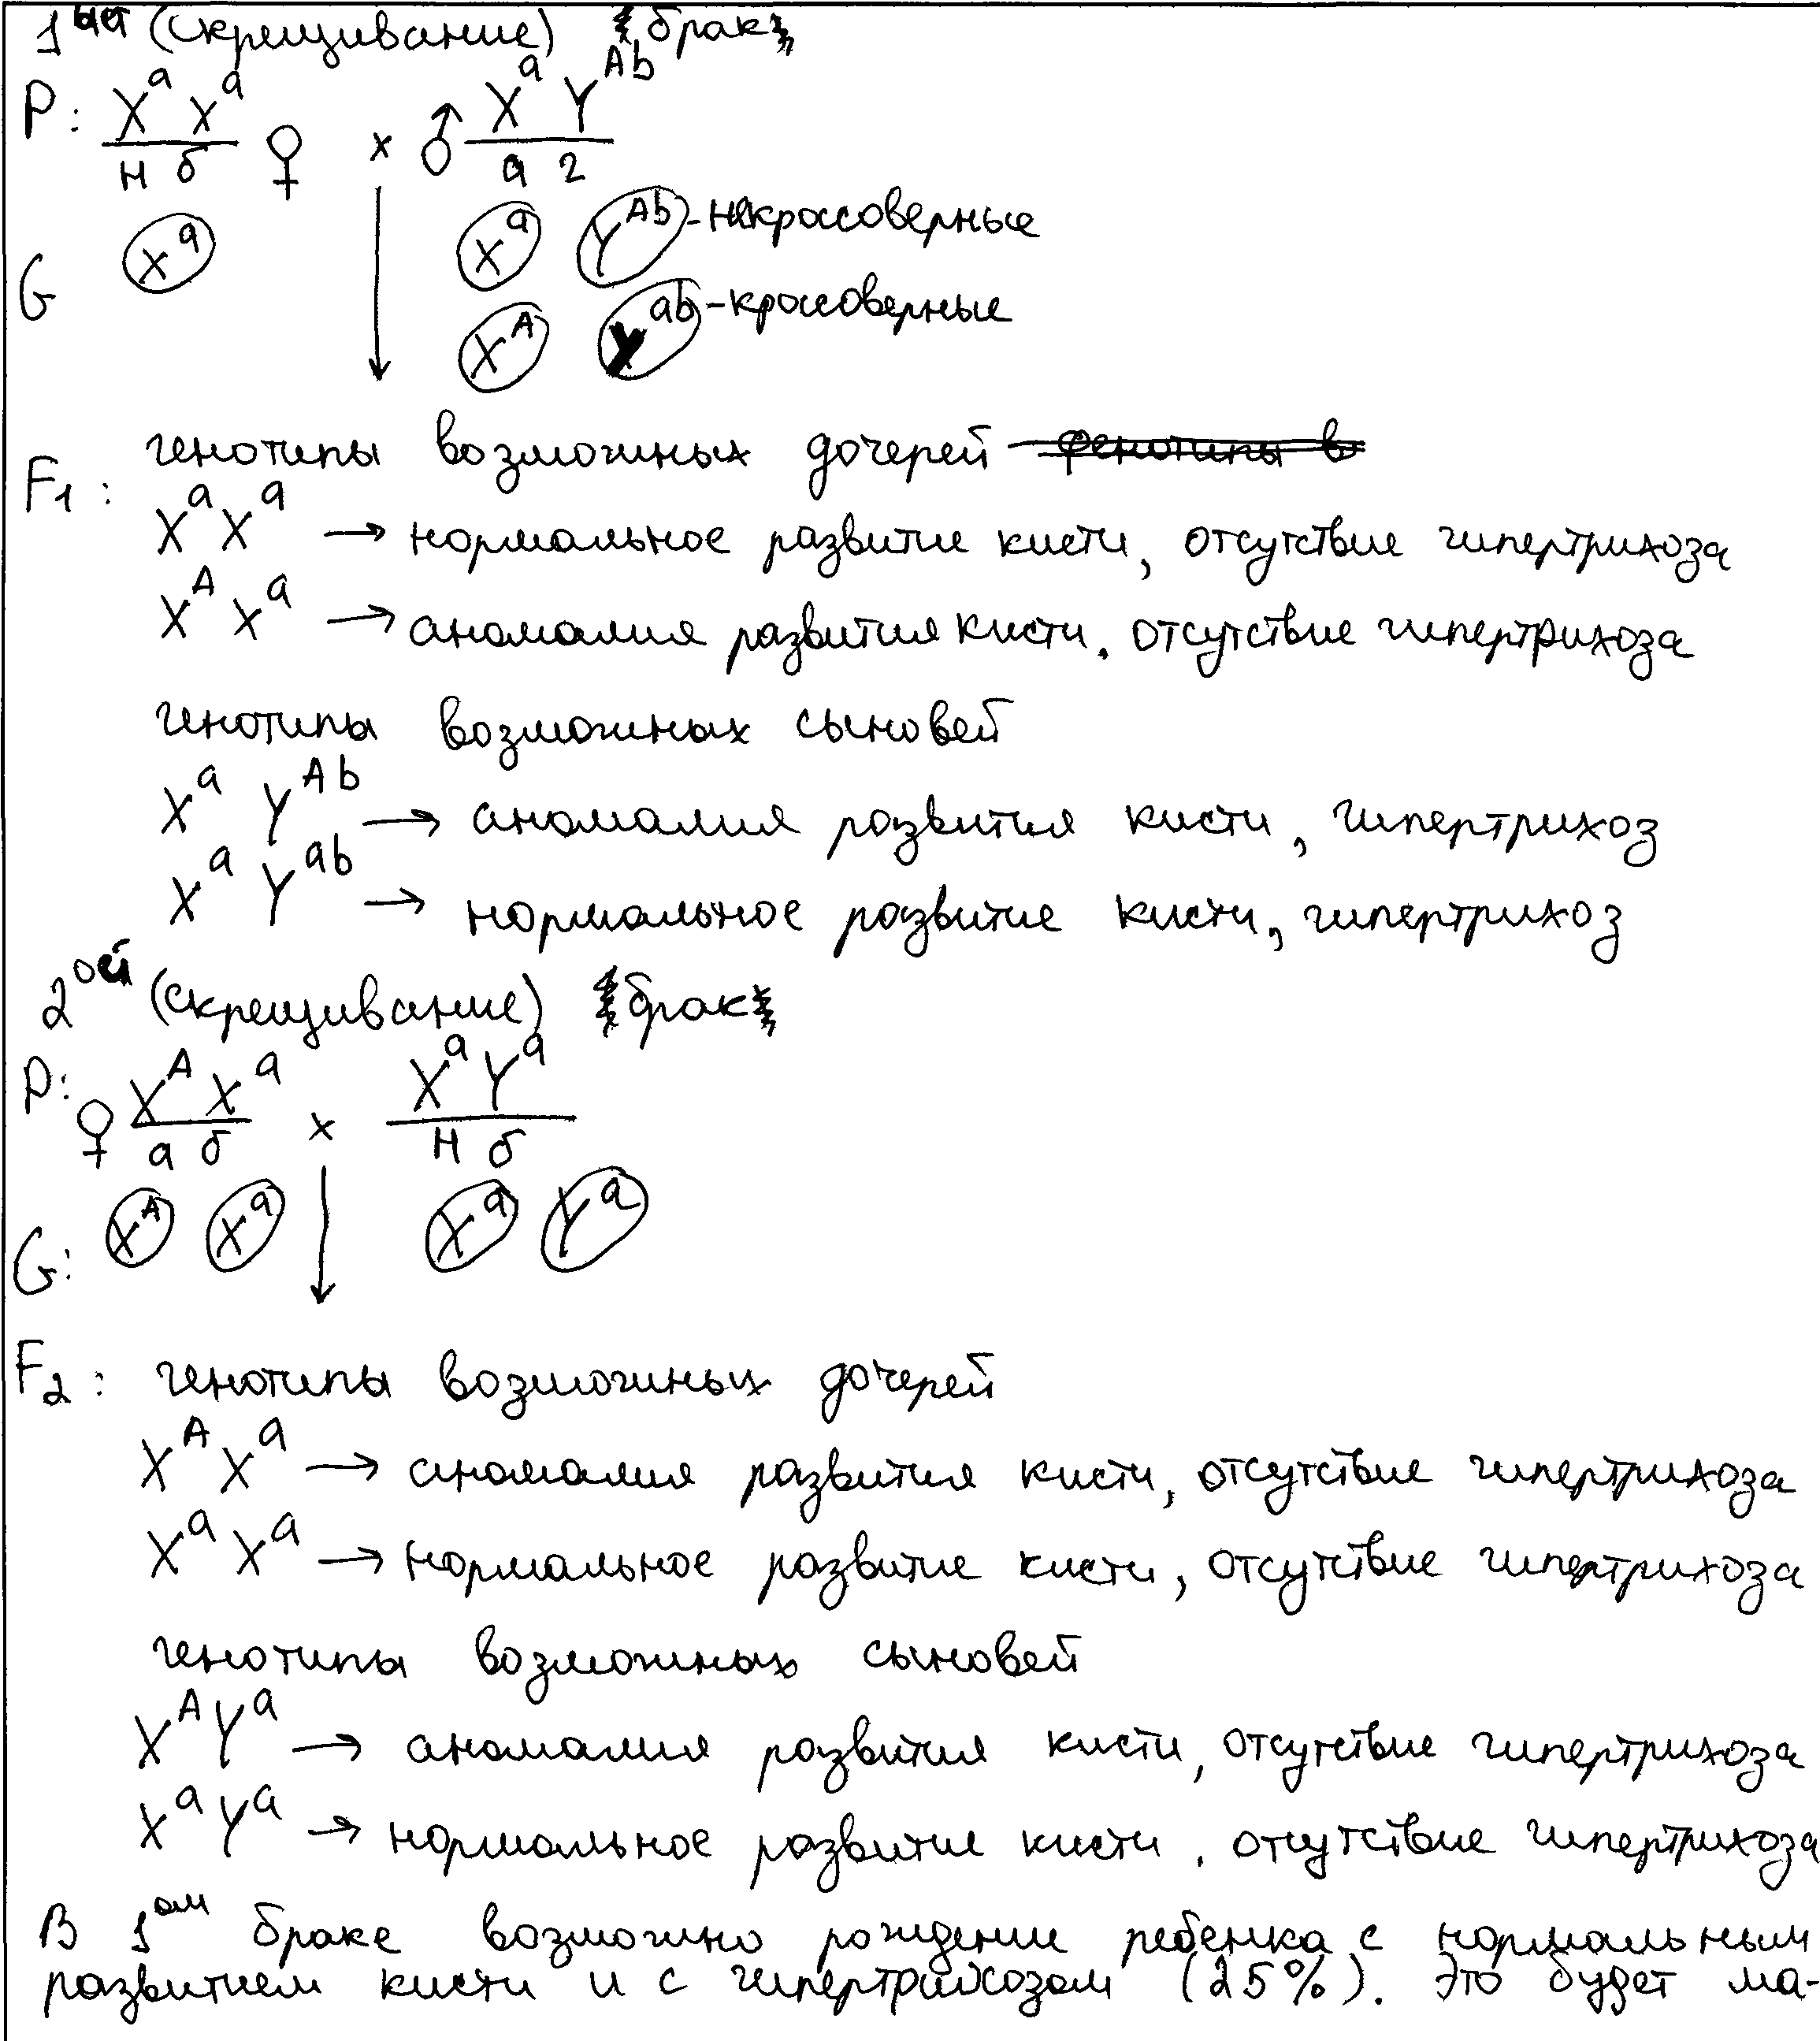 1ый (скрещивание) брак
P: X^a X^a ♀ x ♂ X^a Y^Ab
н б а г
G X^a X^a Y^Ab - некроссоверные
X^A Y^ab - кроссоверные
F1: генотипы возможных дочерей фенотипы в
X^a X^a → нормальное развитие кисти, отсутствие гипертрихоза
X^A X^a → аномалия развития кисти, отсутствие гипертрихоза
генотипы возможных сыновей
X^a Y^Ab → аномалия развития кисти, гипертрихоз
X^a Y^ab → нормальное развитие кисти, гипертрихоз
2ой (скрещивание) брак
P: ♀ X^A X^a x X^a Y^a
а б н б
G: X^A X^a X^a Y^a
F2: генотипы возможных дочерей
X^A X^a → аномалия развития кисти, отсутствие гипертрихоза
X^a X^a → нормальное развитие кисти, отсутствие гипертрихоза
генотипы возможных сыновей
X^A Y^a → аномалия развития кисти, отсутствие гипертрихоза
X^a Y^a → нормальное развитие кисти, отсутствие гипертрихоза
В 1ом браке возможно рождение ребенка с нормальным
развитием кисти и с гипертрихозом (25%). Это будет ма-